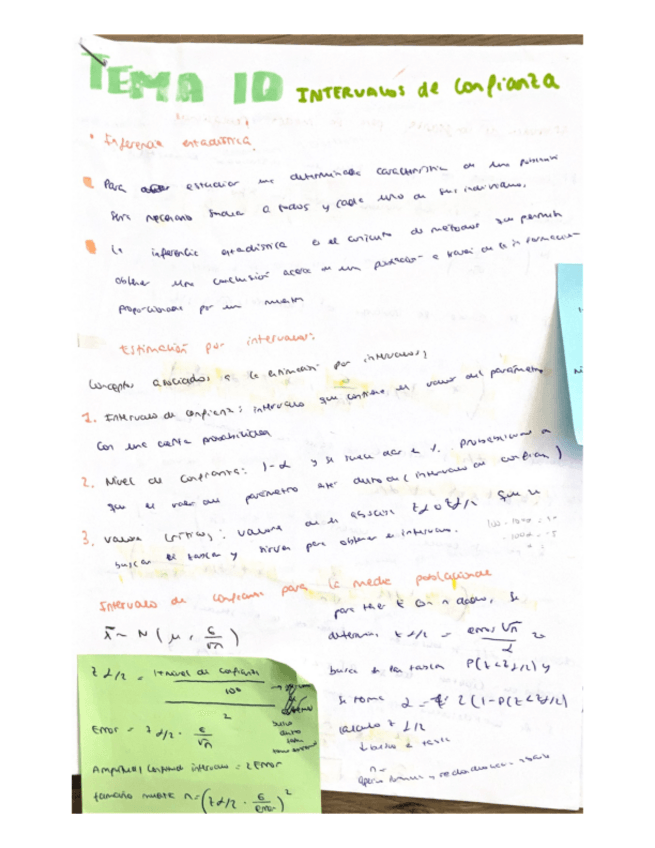 TEMA 10 INTERVALOS de confianza
• Inferencia estadística.
Para estudiar una determinada característica de una población
será necesario a todos y cada uno de sus individuos.
La inferencia estadística es el conjunto de métodos que permite
obtener una conclusión acerca de una población a través de la información
proporcionada por una muestra
Estimación por intervalos:
Conceptos asociados a la estimación por intervalos;
1. Intervalo de confianza: intervalo que contiene el valor del parámetro
Con una cierta probabilidad
2. Nivel de confianza: 1-α y se suele dar e %. probabilidad a
que el valor del parámetro esté dentro de (intervalo de confianza)
3. valores críticos: valores de la zα o zα/2 que se
buscar en tabla y sirven para obtener el intervalo.
Intervalo de confianza para la media poblacional
x̄ ~ N ( μ, σ/√n )
z α/2 = 1+nivel de confianza
100
2
Error = z α/2 · σ/√n
Amplitud intervalo = 2 Error
tamaño muestra n = (zα/2 · σ/error)²
para n datos, se
determina z α/2 = error √n
busca en la tabla P(z<zα/2) y
se toma α = 2(1-P(z<zα/2)
calculo z α/2
n=